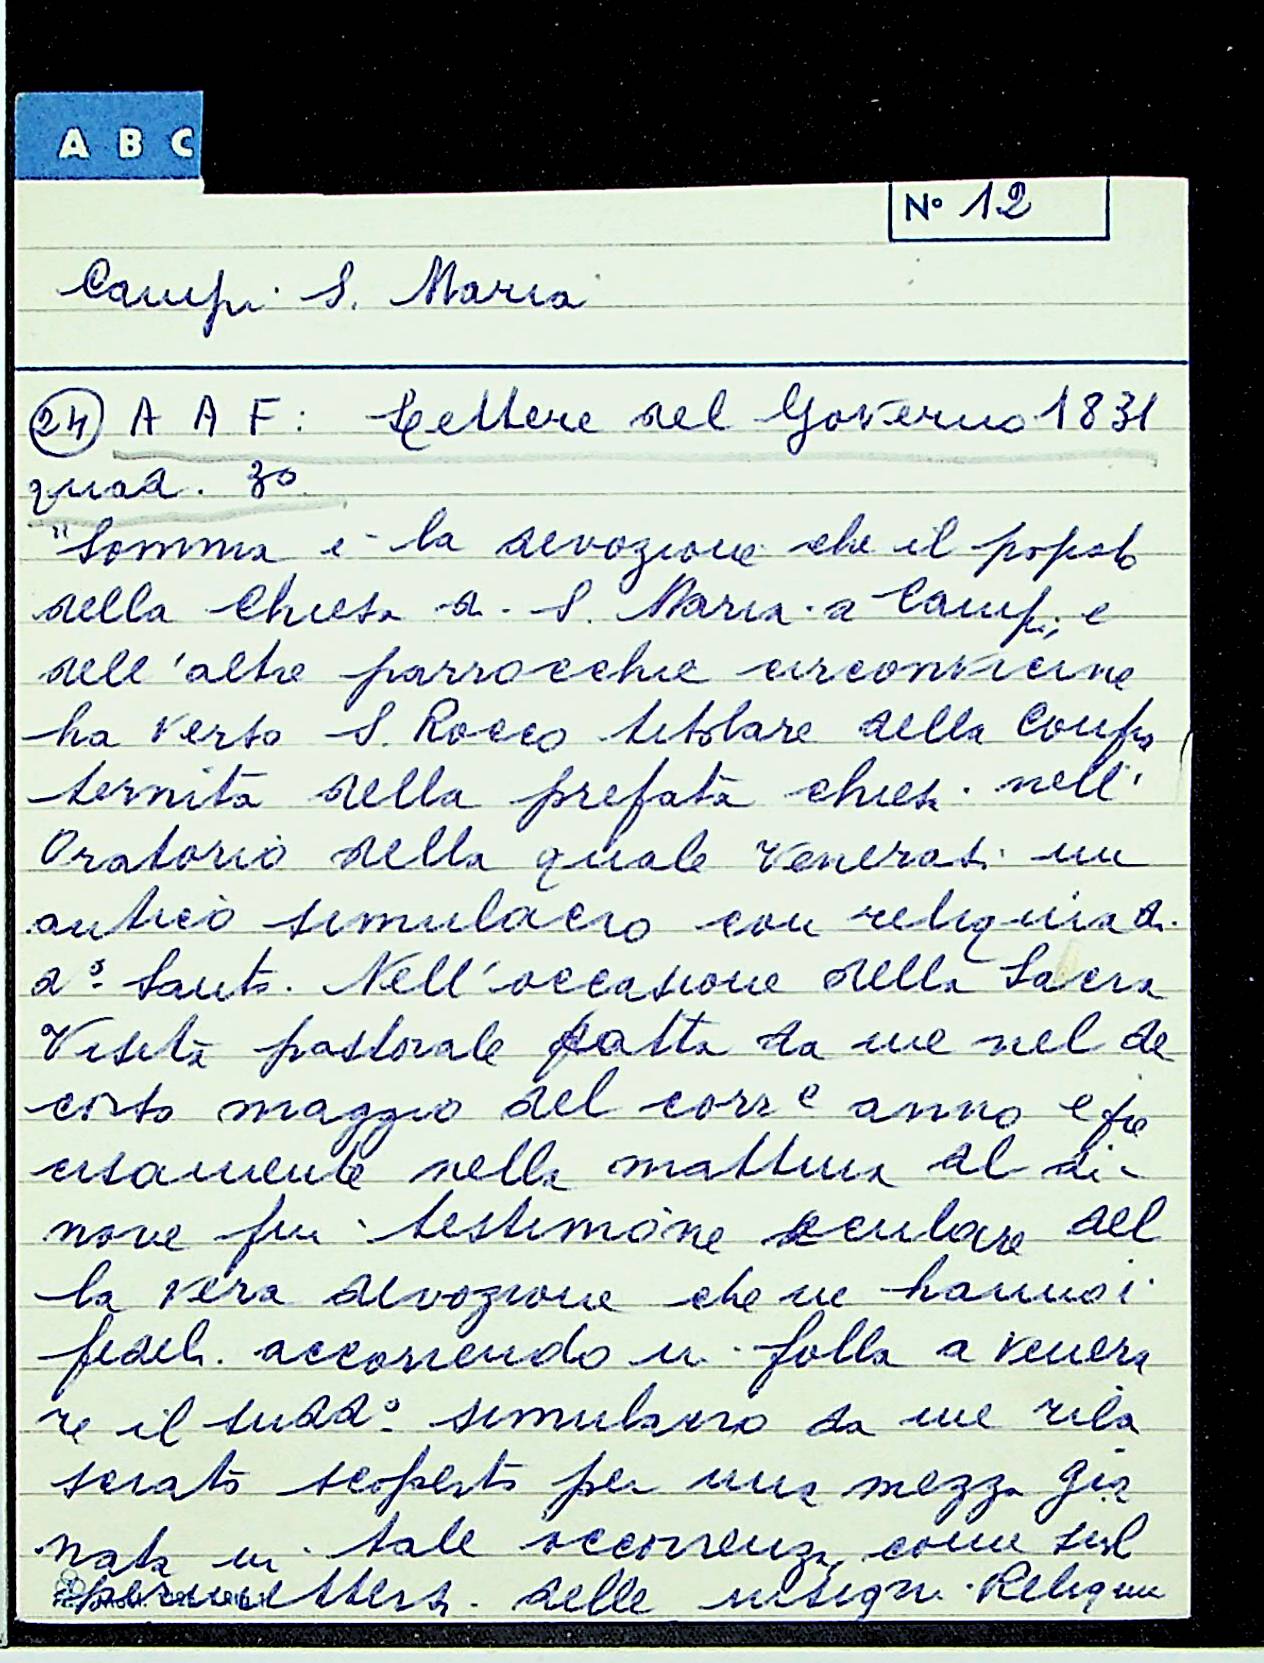 A B C
N° 12
Campi S. Maria
24 A A F: Lettere del Governo 1831
quad. 30
"Somma è la devozione che il popolo
della Chiesa di S. Maria a Campi, e
dell'altre parrocchie circonvicine
ha verso S. Rocco titolare della Confra
ternità della prefata chiesa nell'
Oratorio della quale venerasi un
antico simulacro con reliquia di
d° Santo. Nell'occasione della Sacra
Visita pastorale fatta da me nel de
corso maggio del corr e anno e pre
cisamente nella mattina del di
nove fui testimone oculare del
la vera devozione che ne hanno i
fedeli accorrendo in folla a venera
re il sudd° simulacro da me rila
sciato scoperto per una mezza gior
nata in tale occorrenza, come suol
permettersi delle insigni Reliquie